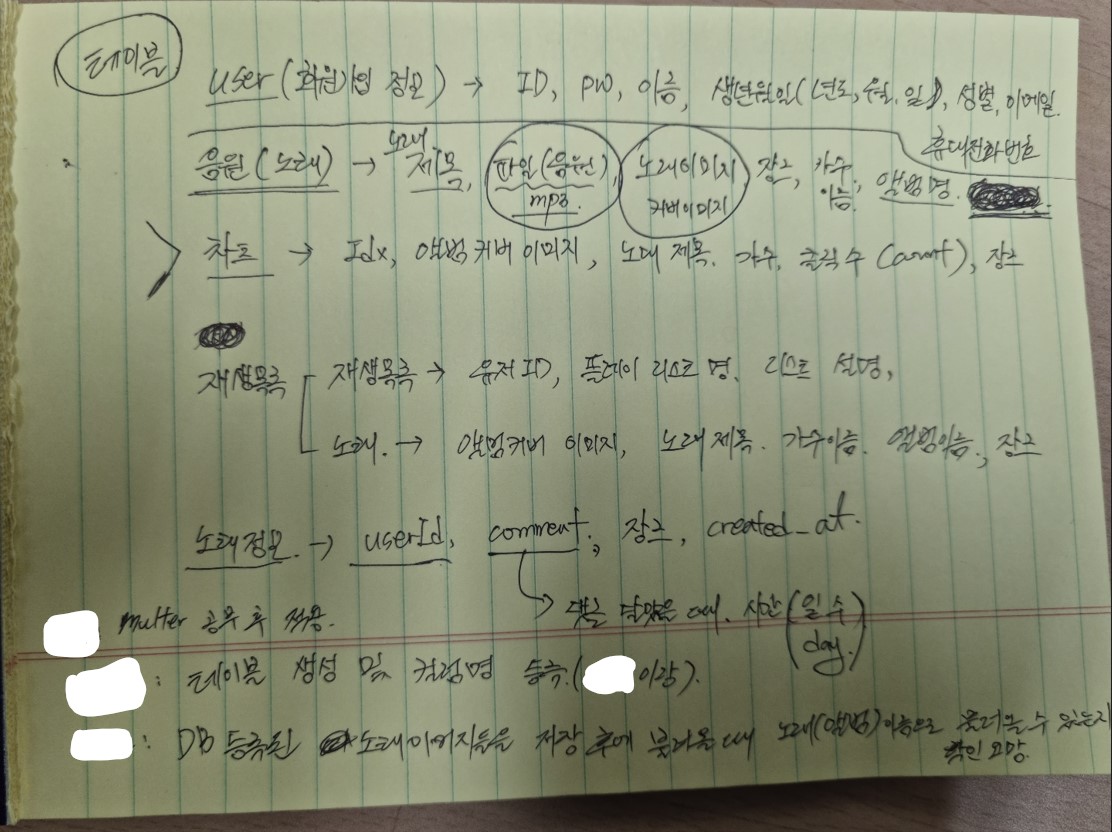 테이블
user (회원가입 정보) → ID, PW, 이름, 생년월일(년도, 월, 일), 성별, 이메일.
휴대전화번호
음원(노래) → 노래 제목, 파일(음원), mp3. 노래이미지 커버이미지 장르, 가수 이름, 앨범명.
차트 → Idx, 앨범 커버 이미지, 노래 제목. 가수, 클릭 수 (count), 장르
재생목록 재생목록 → 유저 ID, 플레이 리스트 명. 리스트 설명,
노래. → 앨범커버 이미지, 노래 제목. 가수이름. 앨범이름, 장르
노래정보. → userId, comment, 장르, created_at.
댓글 달았을 때. 시간 (일 수)
(day.)
multer 공부 후 적용.
: 테이블 생성 및 컬럼명 등록.( 이랑).
: DB 등록된 노래이미지들을 저장 후에 불러올 때 노래(앨범)이름으로 불러올 수 있는지
확인 요망.